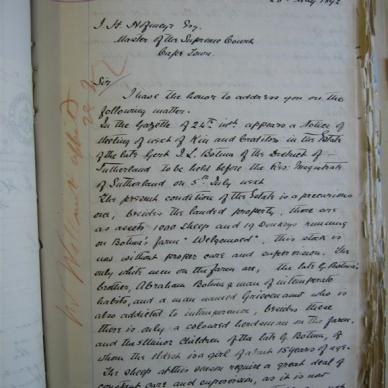 May 1892
J. H. Hofmeyr Esq.
Master of the Supreme Court
Cape Town.
Sir
I have the honor to address you on the
following matter.
In the Gazette of 24th inst. appears a Notice of
Meeting of next of Kin and Creditors in the Estate
of the late Gert J. L. Botma of the District of
Sutherland to be held before the Res: Magistrate
of Sutherland on 5th July next
The present condition of the Estate is a precarious
one, besides the landed property, there are
as assets 1000 sheep and 19 Donkeys running
on Botma's farm "Welgemoed". This stock is
now without proper care and supervision. The
only white men on the farm are, the late G. Botma's
brother, Abraham Botma a man of intemperate
habits, and a man named who is
also addicted to intemperance, besides these
there is only a coloured herdsman on the farm.
and the Minor Children of the late G. Botma, of
whom the eldest is a girl of about 15 years of age.
The sheep at this season require a great deal of
constant care and supervision, as it is not